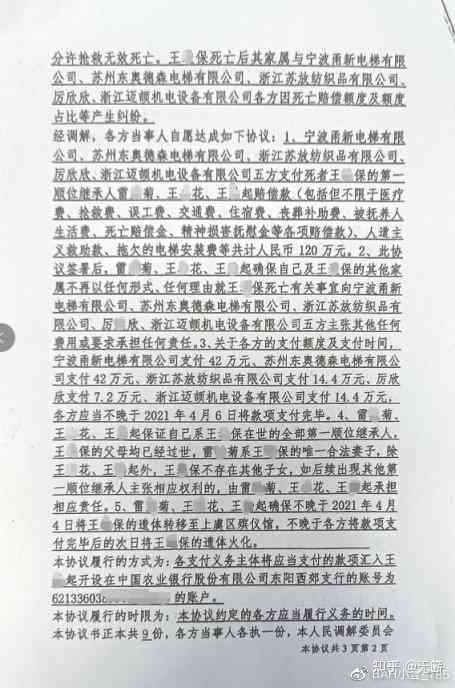 分许抢救无效死亡。王保死亡后其家属与宁波甬新电梯有限
公司、苏州东奥德森电梯有限公司、浙江苏放纺织品有限公司、
厉欣欣、浙江迈颐机电设备有限公司各方因死亡赔偿额度及额度
占比等产生纠纷。
经调解，各方当事人自愿达成如下协议：1、宁波甬新电梯有限公
司、苏州东奥德森电梯有限公司、浙江苏放纺织品有限公司、
厉欣欣、浙江迈颐机电设备有限公司五方支付死者王保的第一
顺位继承人雷菊、王花、王起赔偿款（包括但不限于医疗
费、抢救费、误工费、交通费、住宿费、丧葬补助费、被抚养人
生活费、死亡赔偿金、精神损害抚慰金等各项赔偿款）、人道主
义救助款、拖欠的电梯安装费等共计人民币 120 万元。2、此协
议签署后，雷菊、王花、王起确保自己及王保的其他家
属不再以任何形式、任何理由就王保死亡有关事宜向宁波甬新
电梯有限公司、苏州东奥德森电梯有限公司、浙江苏放纺织品有
限公司、厉欣、浙江迈颐机电设备有限公司五方主张其他任何
费用或要求承担任何责任。3、关于各方的支付额度及支付时间，
宁波甬新电梯有限公司支付 42 万元、苏州东奥德森电梯有限公
司支付 42 万元、浙江苏放纺织品有限公司支付 14.4 万元、厉欣
欣支付 7.2 万元、浙江迈颐机电设备有限公司支付 14.4 万元，
各方应当不晚于 2021 年 4 月 6 日将款项支付完毕。4、雷菊、
王花、王起保证自己系王保在世的全部第一顺位继承人，
王保的父母均已经过世，雷菊系王保的唯一合法妻子，除
王花、王起外，王保不存在其他子女，如后续出现其他第
一顺位继承人主张相应权利的，由雷菊、王花、王起承担
相应责任。5、雷菊、王花、王起确保不晚于 2021 年 4 月
4 日将王保的遗体转移至上虞区殡仪馆，不晚于各方将款项支
付完毕后的次日将王保的遗体火化。
本协议履行的方式为：各支付义务主体将应当支付的款项汇入王
起开设在中国农业银行股份有限公司东阳西郊支行的账号为
621336038的账户。
本协议履行的时限为：本协议约定的各方应当履行义务的时间。
本协议书正本共 9 份，各方当事人各执一份，本人民调解委员会
本协议共 3 页第 2 页